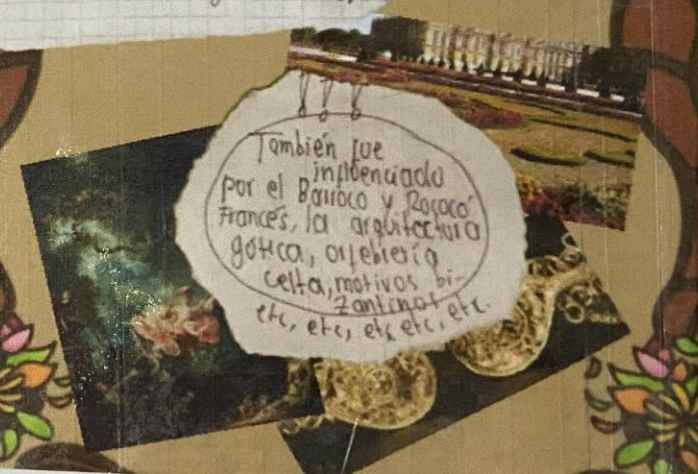 También fue
influenciado
por el Barroco y Rococó
Francés, la arquitectura
gótica, orfebrería
celta, motivos bi-
zantinos, etc.
etc, etc, etc, etc, etc.